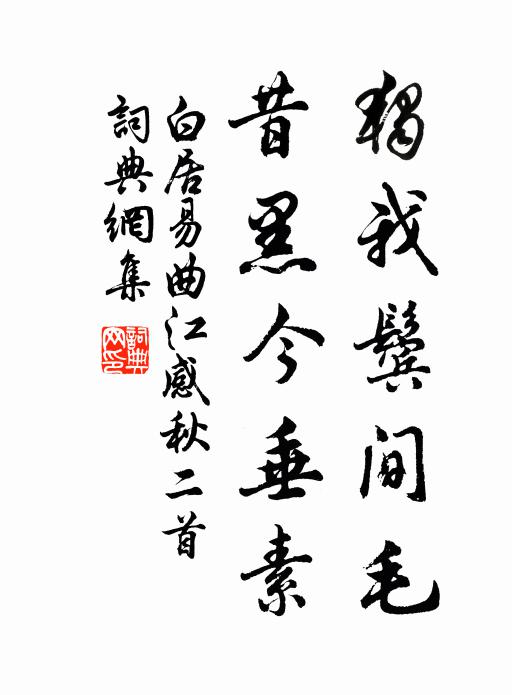 獨我鬢間毛
昔黑今垂素
白居易曲江感秋二首
詞典網集
詞典网印